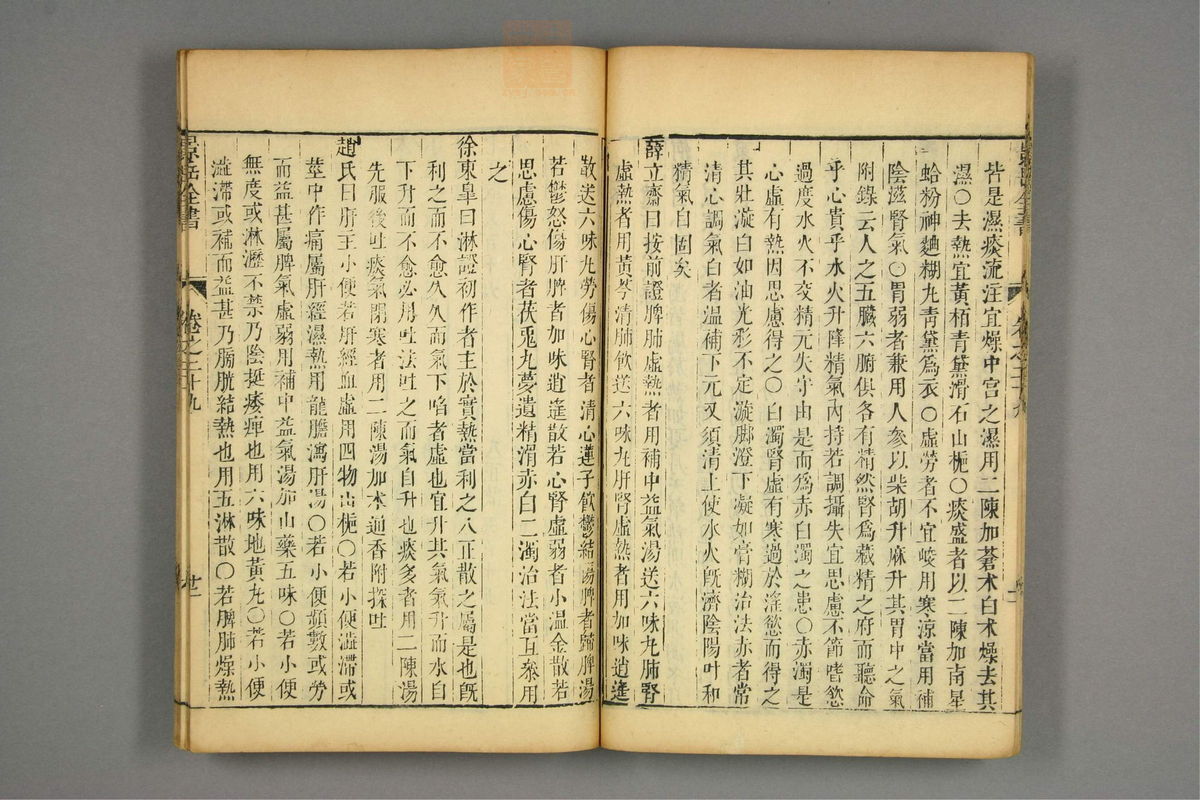 皆是濕痰流注宜燥中宮之濕用二陳加蒼朮白朮燥去其
濕○去熱宜黃栢青黛滑石山梔○痰盛者以二陳加南星
蛤粉神麯糊丸青黛爲衣○虛勞者不宜峻用寒涼當用補
陰滋腎氣○胃弱者兼用人參以柴胡升麻升其胃中之氣
附錄云人之五臟六腑俱各有精然腎爲藏精之府而聽命
乎心貴乎水火升降精氣內持若調攝失宜思慮不節嗜慾
過度水火不交精元失守由是而爲赤白濁之患○赤濁是
心虛有熱因思慮得之○白濁腎虛有寒過於淫慾而得之
其壯漩白如油光彩不定漩脚澄下凝如膏糊治法赤者當
清心調氣白者温補下元又須清上使水火旣濟陰陽叶和
精氣自固矣
薛立齋曰按前證脾肺虛熱者用補中益氣湯送六味丸肺腎
虛熱者用黃芩清肺飲送六味丸肝腎虛熱者用加味逍遙
散送六味丸勞傷心腎者清心蓮子飲鬱結傷脾者歸脾湯
若鬱怒傷肝脾者加味逍遙散若心腎虛弱者小温金散若
思慮傷心腎者茯兎丸夢遺精滑赤白二濁治法當互叅用
之
徐東皐曰淋證初作者主於實熱當利之八正散之屬是也旣
利之而不愈久久而氣下陷者虛也宜升其氣氣升而水自
下升而不愈必用吐法吐之而氣自升也痰多者用二陳湯
先服後吐痰氣閉塞者用二陳湯加木通香附探吐
趙氏曰肝主小便若肝經血虛用四物山梔○若小便澁滯或
莖中作痛屬肝經濕熱用龍膽瀉肝湯○若小便頻數或勞
而益甚屬脾氣虛弱用補中益氣湯加山藥五味○若小便
無度或淋瀝不禁乃陰挺痿痺也用六味地黃丸○若小便
澁滯或補而益甚乃膀胱結熱也用五淋散○若脾肺燥熱
景岳全書
卷之二十九
廿二